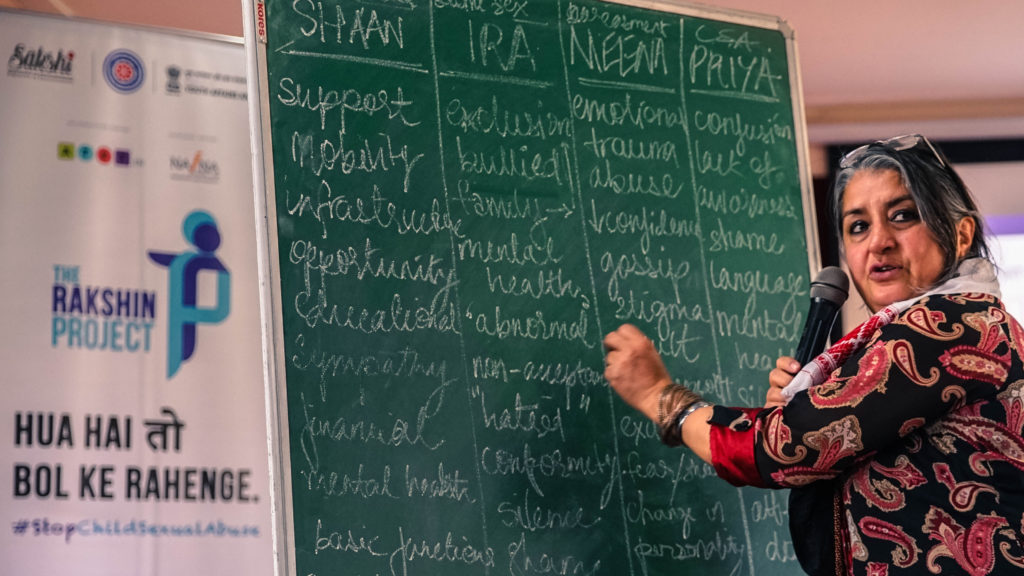 Sakshi
THE
RAKSHIN
PROJECT
HUA HAI तो
BOL KE RAHENGE.
#StopChildSexualAbuse
SHAAN
support
mobility
opportunity
educational
sympathy
financial
mental health
basic functions
same sex
IRA
exclusion
bullied
family →
mental
health
"abnormal
hatred
conformity
silence
shame
harassment
NEENA
emotional
trauma
abuse
gossip
stigma
change in
personality
CSA
PRIYA
confusion
lack of
awareness
shame
language
mental